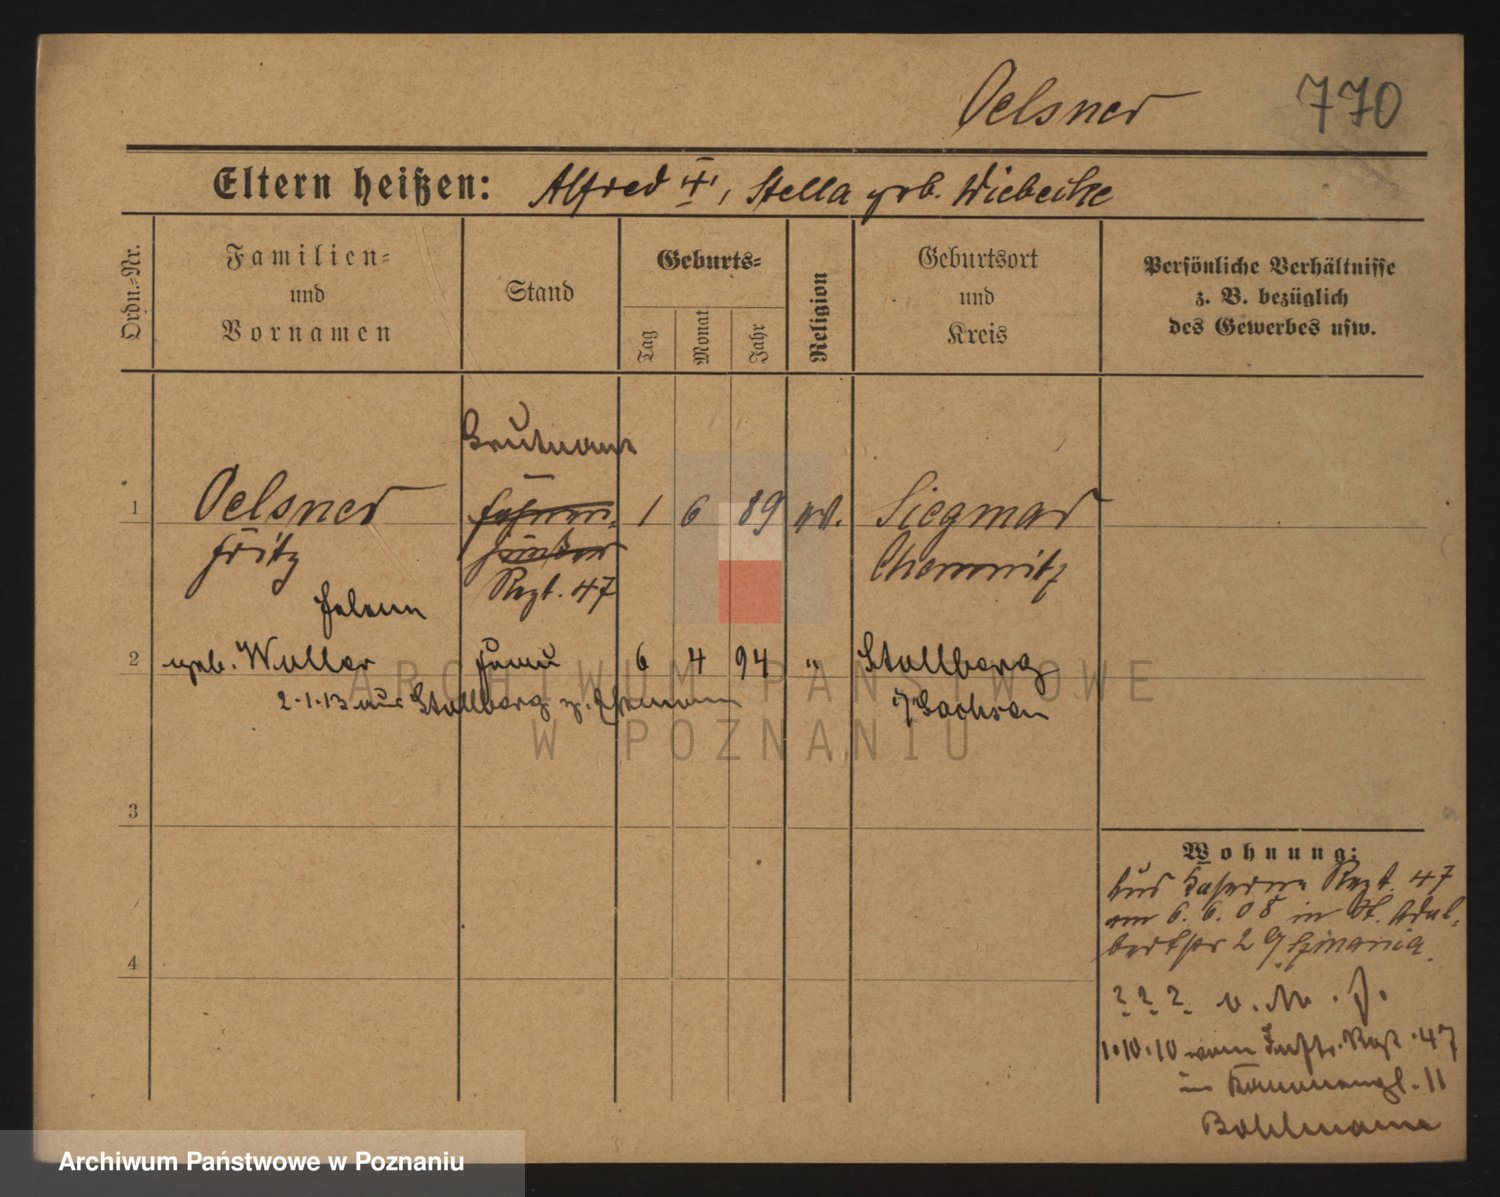 Oelsner 770
Eltern heißen: Alfred †, Stella geb. Wiebecke
Ordn.-Nr.
Familien-
und
Vornamen
Stand
Geburts-
Tag
Monat
Jahr
Religion
Geburtsort
und
Kreis
Persönliche Verhältnisse
z. B. bezüglich
des Gewerbes usw.
Leutnant
1 Oelsner Fahnen- 1 6 89 ev. Siegmar
Fritz junker Chemnitz
Regt. 47
Helene
2 geb. Woller Frau 6 4 94 " Stollberg
2.1.13 aus Stollberg z. Ehemann i/Sachsen
3
4
Wohnung:
Aus Kaserne Regt. 47
am 6.6.08 in St. Adal-
bertstr 2
? ? ?
1.10.10 vom Inftr. Regt. 47
in 11
Bohlmann
ARCHIWUM PAŃSTWOWE
W POZNANIU
Archiwum Państwowe w Poznaniu